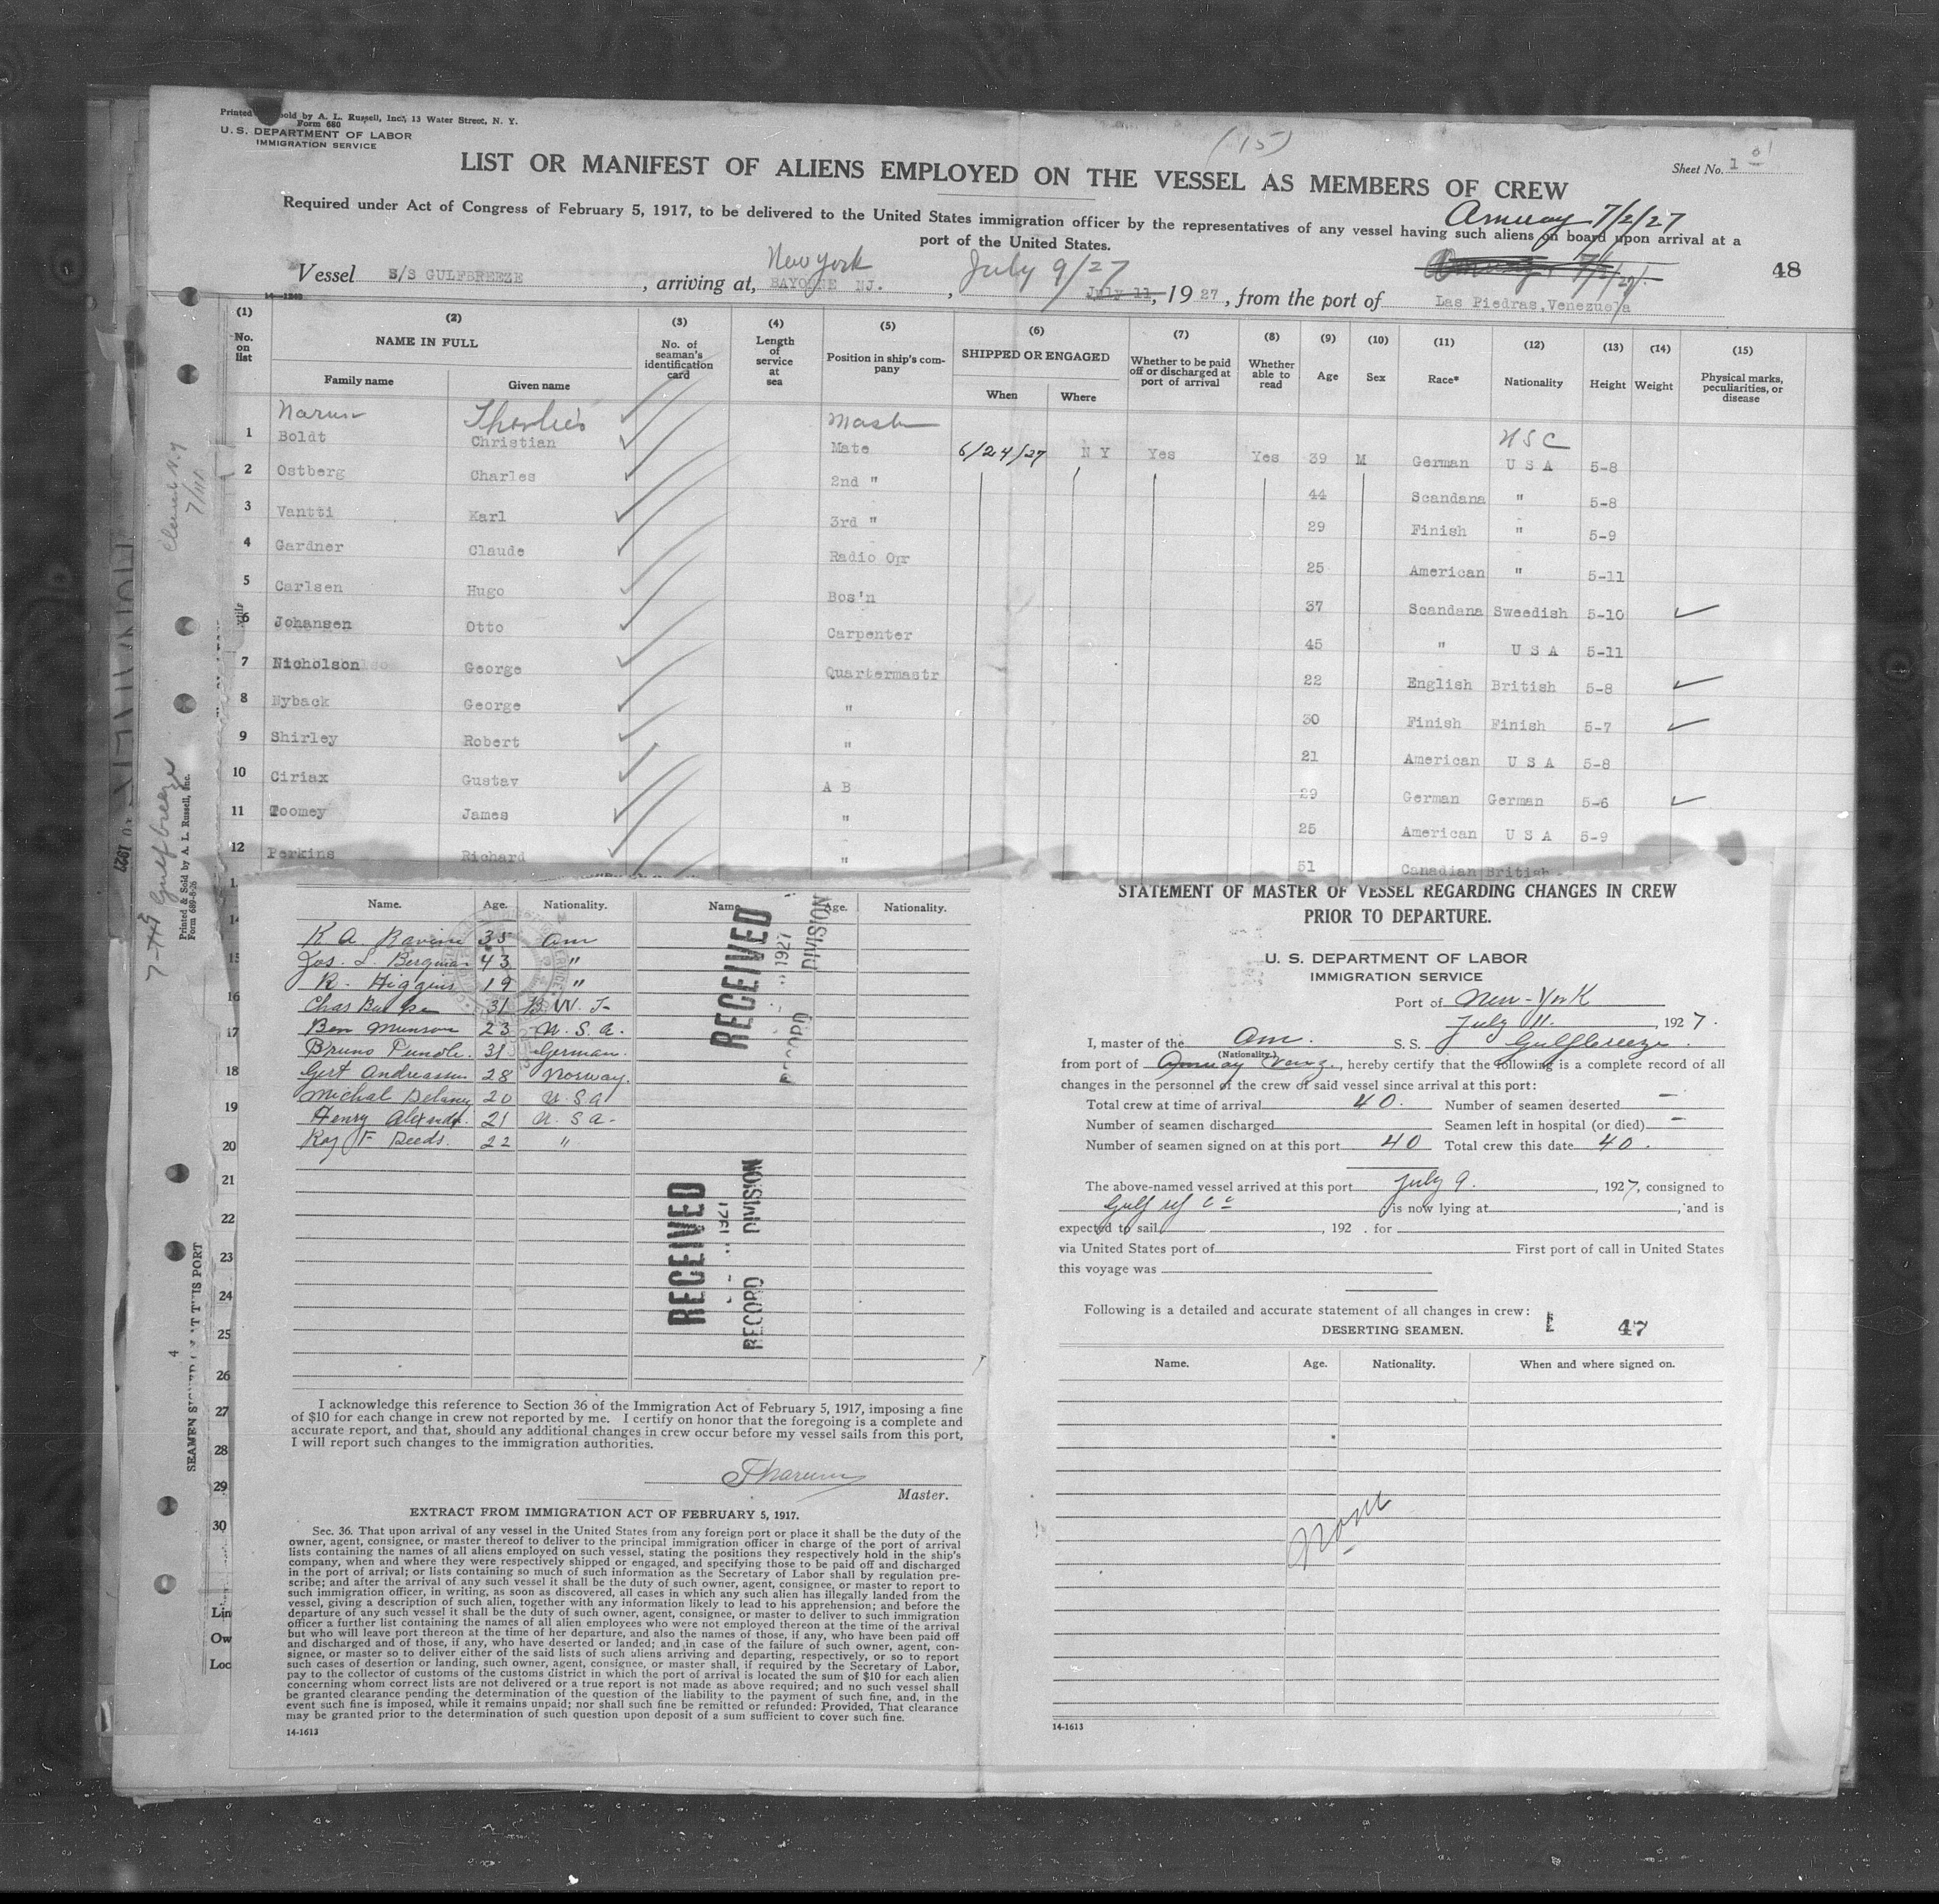 Printed sold by A. L. Russell, Inc., 13 Water Street, N. Y.
Form 680
U. S. DEPARTMENT OF LABOR
IMMIGRATION SERVICE
(15)
Sheet No. 1
LIST OR MANIFEST OF ALIENS EMPLOYED ON THE VESSEL AS MEMBERS OF CREW
Required under Act of Congress of February 5, 1917, to be delivered to the United States immigration officer by the representatives of any vessel having such aliens on board upon arrival at a
port of the United States.
Amuay 7/2/27
Vessel S/S GULFBREEZE, arriving at, New York BAYONNE NJ., July 9/27 July 11, 1927, from the port of Las Piedras, Venezuela
48
14-1240
(1) (2) (3) (4) (5) (6) (7) (8) (9) (10) (11) (12) (13) (14) (15)
No. on list NAME IN FULL No. of seaman's identification card Length of service at sea Position in ship's company SHIPPED OR ENGAGED Whether to be paid off or discharged at port of arrival Whether able to read Age Sex Race* Nationality Height Weight Physical marks, peculiarities, or disease
Family name Given name When Where
Master
1 Boldt Christian Mate 6/24/27 N Y Yes Yes 39 M German USC U S A 5-8
2 Ostberg Charles 2nd " 44 Scandana " 5-8
3 Vantti Karl 3rd " 29 Finish " 5-9
4 Gardner Claude Radio Opr 25 American " 5-11
5 Carlsen Hugo Bos'n 37 Scandana Sweedish 5-10
6 Johansen Otto Carpenter 45 " U S A 5-11
7 Nicholson George Quartermastr 22 English British 5-8
8 Nyback George " 30 Finish Finish 5-7
9 Shirley Robert " 21 American U S A 5-8
10 Ciriax Gustav A B 29 German German 5-6
11 Toomey James " 25 American U S A 5-9
12 Perkins Richard " 51 Canadian British
14
15
16
17
18
19
20
21
22
23
24
25
26
27
28
29
30
Lin
Ow
Loc
7-11 Gulfbreeze
Printed & Sold by A. L. Russell, Inc.
Form 689-8-26
4
Name. Age. Nationality. Name. Age. Nationality.
K A 35 Am
Jos. L. Bergman 43 "
R. Higgins 19 "
Chas 31 B. W. I.
Ben Munson 23 U. S. A.
Bruno 31 German.
Gert Andreassen 28 Norway.
Michal Delaney 20 U. S A
Henry 21 U. S A.
Roy F Deeds. 22 "
RECEIVED
1927
RECORD DIVISION
RECEIVED
1927
RECORD DIVISION
I acknowledge this reference to Section 36 of the Immigration Act of February 5, 1917, imposing a fine
of $10 for each change in crew not reported by me. I certify on honor that the foregoing is a complete and
accurate report, and that, should any additional changes in crew occur before my vessel sails from this port,
I will report such changes to the immigration authorities.
Master.
EXTRACT FROM IMMIGRATION ACT OF FEBRUARY 5, 1917.
Sec. 36. That upon arrival of any vessel in the United States from any foreign port or place it shall be the duty of the
owner, agent, consignee, or master thereof to deliver to the principal immigration officer in charge of the port of arrival
lists containing the names of all aliens employed on such vessel, stating the positions they respectively hold in the ship's
company, when and where they were respectively shipped or engaged, and specifying those to be paid off and discharged
in the port of arrival; or lists containing so much of such information as the Secretary of Labor shall by regulation pre-
scribe; and after the arrival of any such vessel it shall be the duty of such owner, agent, consignee, or master to report to
such immigration officer, in writing, as soon as discovered, all cases in which any such alien has illegally landed from the
vessel, giving a description of such alien, together with any information likely to lead to his apprehension; and before the
departure of any such vessel it shall be the duty of such owner, agent, consignee, or master to deliver to such immigration
officer a further list containing the names of all alien employees who were not employed thereon at the time of the arrival
but who will leave port thereon at the time of her departure, and also the names of those, if any, who have been paid off
and discharged and of those, if any, who have deserted or landed; and in case of the failure of such owner, agent, con-
signee, or master so to deliver either of the said lists of such aliens arriving and departing, respectively, or so to report
such cases of desertion or landing, such owner, agent, consignee, or master shall, if required by the Secretary of Labor,
pay to the collector of customs of the customs district in which the port of arrival is located the sum of $10 for each alien
concerning whom correct lists are not delivered or a true report is not made as above required; and no such vessel shall
be granted clearance pending the determination of the question of the liability to the payment of such fine, and, in the
event such fine is imposed, while it remains unpaid; nor shall such fine be remitted or refunded: Provided, That clearance
may be granted prior to the determination of such question upon deposit of a sum sufficient to cover such fine.
14-1613
STATEMENT OF MASTER OF VESSEL REGARDING CHANGES IN CREW
PRIOR TO DEPARTURE.
U. S. DEPARTMENT OF LABOR
IMMIGRATION SERVICE
Port of New-York
July 11., 1927.
I, master of the Am. S. S. Gulfbreeze.
(Nationality.)
from port of Amuay Venz., hereby certify that the following is a complete record of all
changes in the personnel of the crew of said vessel since arrival at this port:
Total crew at time of arrival 40. Number of seamen deserted -
Number of seamen discharged Seamen left in hospital (or died) -
Number of seamen signed on at this port 40 Total crew this date 40.
The above-named vessel arrived at this port July 9., 1927, consigned to
Gulf rf Co is now lying at, and is
expected to sail, 192 . for
via United States port of First port of call in United States
this voyage was
Following is a detailed and accurate statement of all changes in crew:
DESERTING SEAMEN.
47
Name. Age. Nationality. When and where signed on.
None
14-1613